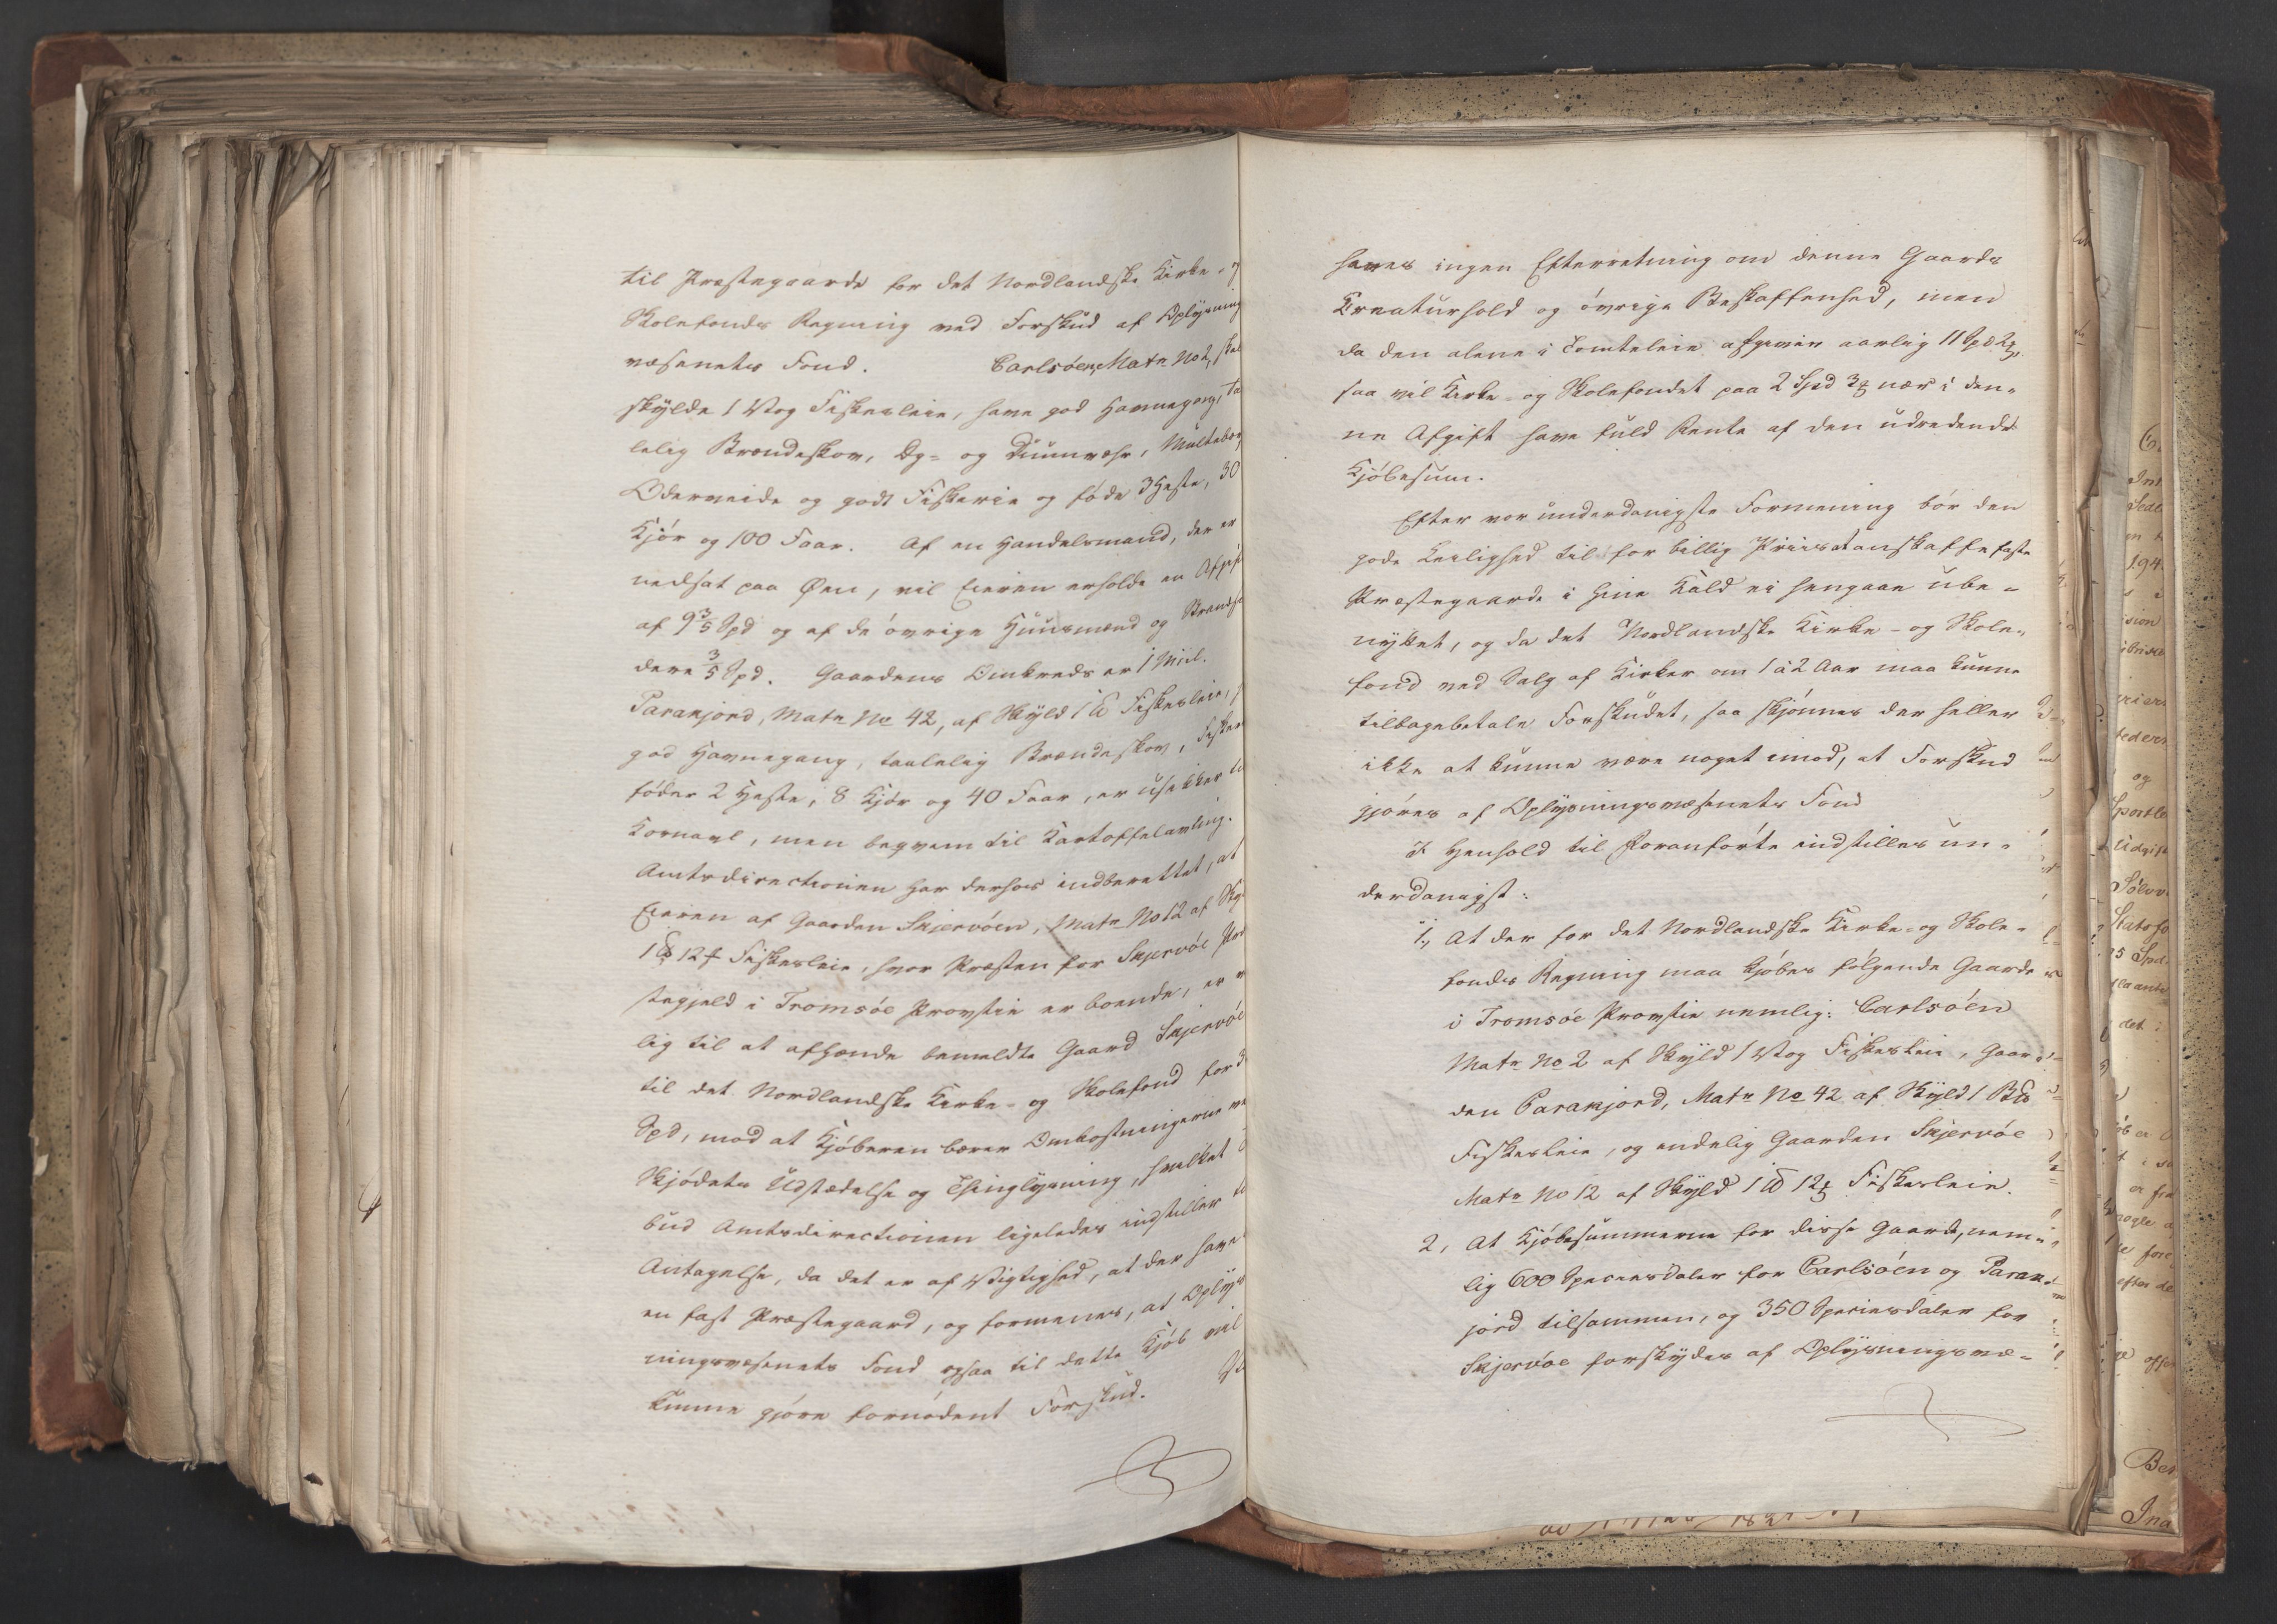 til Præstegaarde for det Nordlandske Kirke- og
Skolefonds Regning ved Forskud af Oplysning
væsenets Fond. Carlsöen, Matr No 2, skal
skylde 1 Vog Fiskesleie, have god Havnegang, ta
lelig Brændeskov, Eg- og Duunvær, Multebær,
Oderveide og godt Fiskerie og föde 3 Heste, 30
Kjör og 100 Faar. Af en Handelsmand, der er
nedsat paa Øen, vil Eieren erholde en Afgift
af 9 3/5 Spd og af de övrige Huusmænd og Strandsi
dere 3/5 Spd. Gaardens Omkreds er 1 Miil.
Parakjord, Matr No 42, af Skyld 1 Fiskesleie,
god Havnegang, taalelig Brændeskov, Fisker
föder 2 Heste, 8 Kjör og 40 Faar, er usikker til
Kornavl, men beqvem til Kartoffelavling.
Amtsdirectionen har derhos indberettet, at
Eieren af Gaarden Skjervöen, Matr No 12 af Sky
1 12 Fiskesleie, hvor Præsten for Skjervöe Præ
stegjeld i Tromsöe Provstie er boende, er v
lig til at afhænde bemeldte Gaard Skjervöe
til det Nordlandske Kirke- og Skolefond for 3
Spd, mod at Kjöberen bærer Omkostningerne ve
Skjödets Udstædelse og Thinglysning, hvilket
bud Amtsdirectionen ligeledes indstiller til
Antagelse, da det er af Vigtighed, at der haves
en fast Præstegaard, og formenes, at Oplys
ningsvæsenets Fond ogsaa til dette Kjöb vil
kunne gjöre fornödent Forskud.
haves ingen Efterretning om denne Gaards
Kreaturhold og övrige Beskaffenhed, men
da den alene i Tomteleie afgiver aarlig 11 Spd 2
saa vil Kirke- og Skolefondet paa 2 Spd 3 nær i den-
ne Afgift have fuld Rente af den udredende
Kjöbesum.
Efter vor underdanigste Formening bör den
gode Leilighed til for billig Priis at anskaffe faste
Præstegaarde i hine Kald ei hengaae ube-
nyttet, og da det Nordlandske Kirke- og Skole-
fond ved Salg af Kirker om 1 à 2 Aar maa kunne
tilbagebetale Forskudet, saa skjönnes der heller
ikke at kunne være noget imod, at Forskud
gjöres af Oplysningsvæsenets Fond
I Henhold til Foranförte indstilles un-
derdanigst:
1, At der for det Nordlandske Kirke- og Skole-
fonds Regning maa kjöbes fölgende Gaarde
i Tromsöe Provstie nemlig: Carlsöen
Matr No 2 af Skyld 1 Vog Fiskesleie, Gaar-
den Parakjord, Matr No 42 af Skyld 1
Fiskesleie, og endelig Gaarden Skjervöe
Matr No 12 af Skyld 1 12 Fiskesleie.
2, At Kjöbesummerne for disse Gaarde, nem-
lig 600 Speciesdaler for Carlsöen og Parak-
jord tilsammen, og 350 Speciesdaler for
Skjervöe forskydes af Oplysningsvæ-